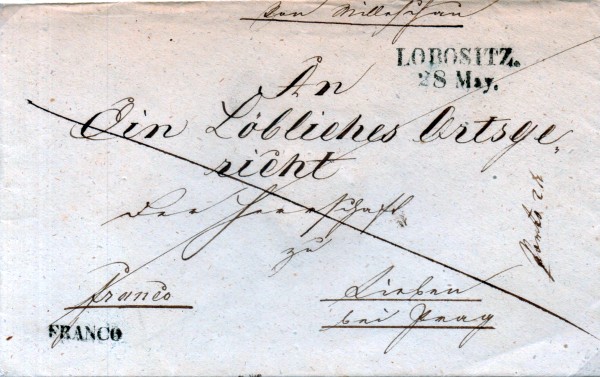 Von Milleschau
LOBOSITZ.
28 May.
An
Ein Löbliches Ortsge-
richt
der Herrschaft
zu
Franco
Lieben
bei Prag
FRANCO